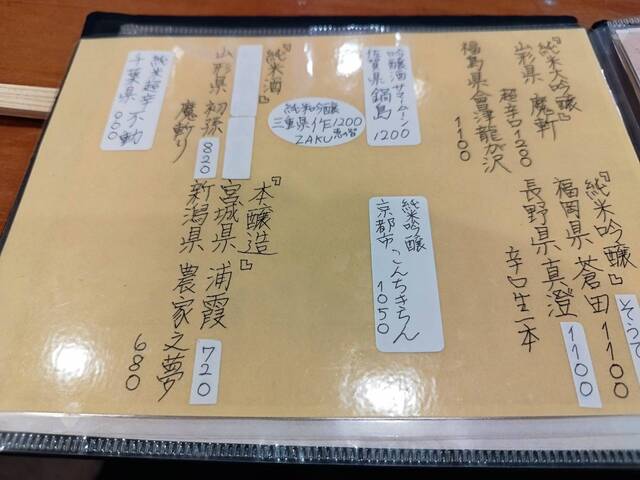 『純米大吟醸』
山形県 魔斬
超辛口1200
福島県會津龍が沢
1100
『純米吟醸』
福岡県 蒼田 1100
そうで
長野県真澄 1100
辛口生一本
吟醸酒サマームーン
佐賀県 鍋島 1200
純米吟醸
京都市 こんちきちん
1050
純米吟醸
三重県 作 1200
ZAKU
『純米酒』
山形県 初孫
魔斬り 820
『本醸造』
宮城県 浦霞 720
新潟県 農家之夢
680
純米超辛
千葉県 不動